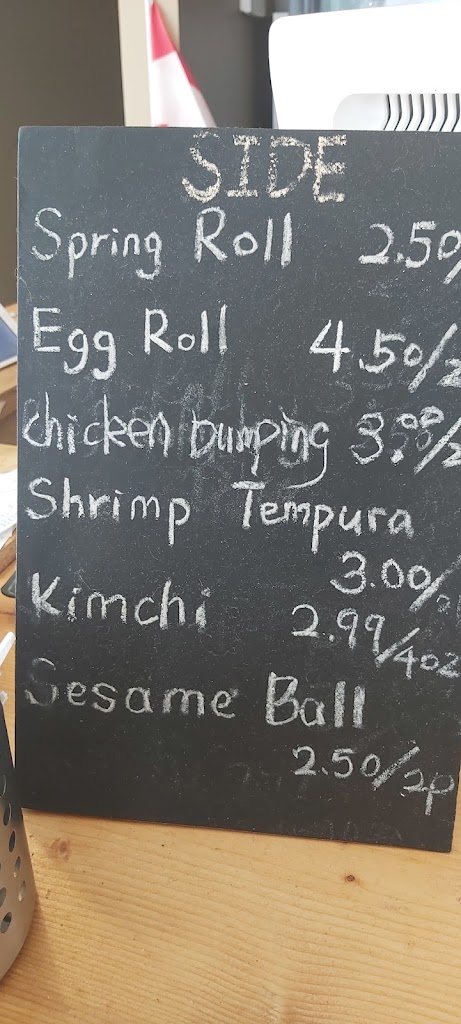 SIDE
Spring Roll 2.50/
Egg Roll 4.50/2
Chicken Dumping /2
Shrimp Tempura
3.00/
Kimchi 2.99/4oz
Sesame Ball
2.50/2p